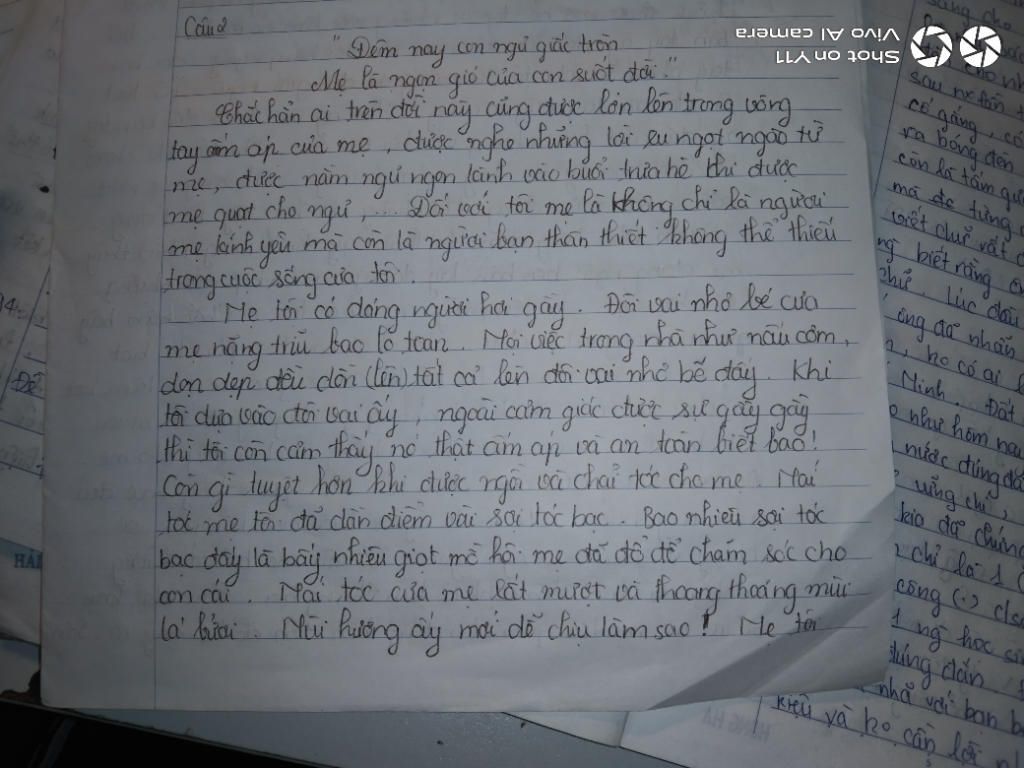 Câu 2
"Đêm nay con ngủ giấc tròn
Mẹ là ngọn gió của con suốt đời."
Chắc hẳn ai trên đời này cũng được lớn lên trong vòng
tay ấm áp của mẹ, được nghe những lời ru ngọt ngào từ
mẹ, được nằm ngủ ngon lành vào buổi trưa hè thì được
mẹ quạt cho ngủ,... Đối với tôi mẹ là không chỉ là người
mẹ kính yêu mà còn là người bạn thân thiết không thể thiếu
trong cuộc sống của tôi.
Mẹ tôi có dáng người hơi gầy. Đôi vai nhỏ bé của
mẹ nặng trĩu bao lo toan. Mọi việc trong nhà như nấu cơm,
dọn dẹp đều dồn (lên) tất cả lên đôi vai nhỏ bé đấy. Khi
tôi dựa vào đôi vai ấy, ngoài cảm giác được sự gầy gầy
thì tôi còn cảm thấy nó thật ấm áp và an toàn biết bao!
Còn gì tuyệt hơn khi được ngồi và chải tóc cho mẹ. Mái
tóc mẹ tôi đã dần điểm vài sợi tóc bạc. Bao nhiêu sợi tóc
bạc đấy là bấy nhiêu giọt mồ hôi mẹ đã đổ để chăm sóc cho
con cái. Mái tóc của mẹ lất mượt và thoang thoáng mùi
lá bưởi. Mùi hương ấy mới dễ chịu làm sao! Mẹ tôi
Shot on Y11
Vivo AI camera
cố gắng, có
ra bóng đèn
còn là tấm
mà đc từng
viết chữ rất
biết rằng
chữ. Lúc đầu
ông đã nhấn
, ko có ai
Minh. Đất
như hôm nay
nước đứng
chí,
kia đã
chỉ là 1
công (.)
học
đúng đắn
nhã với bạn
kiệu và ko cần